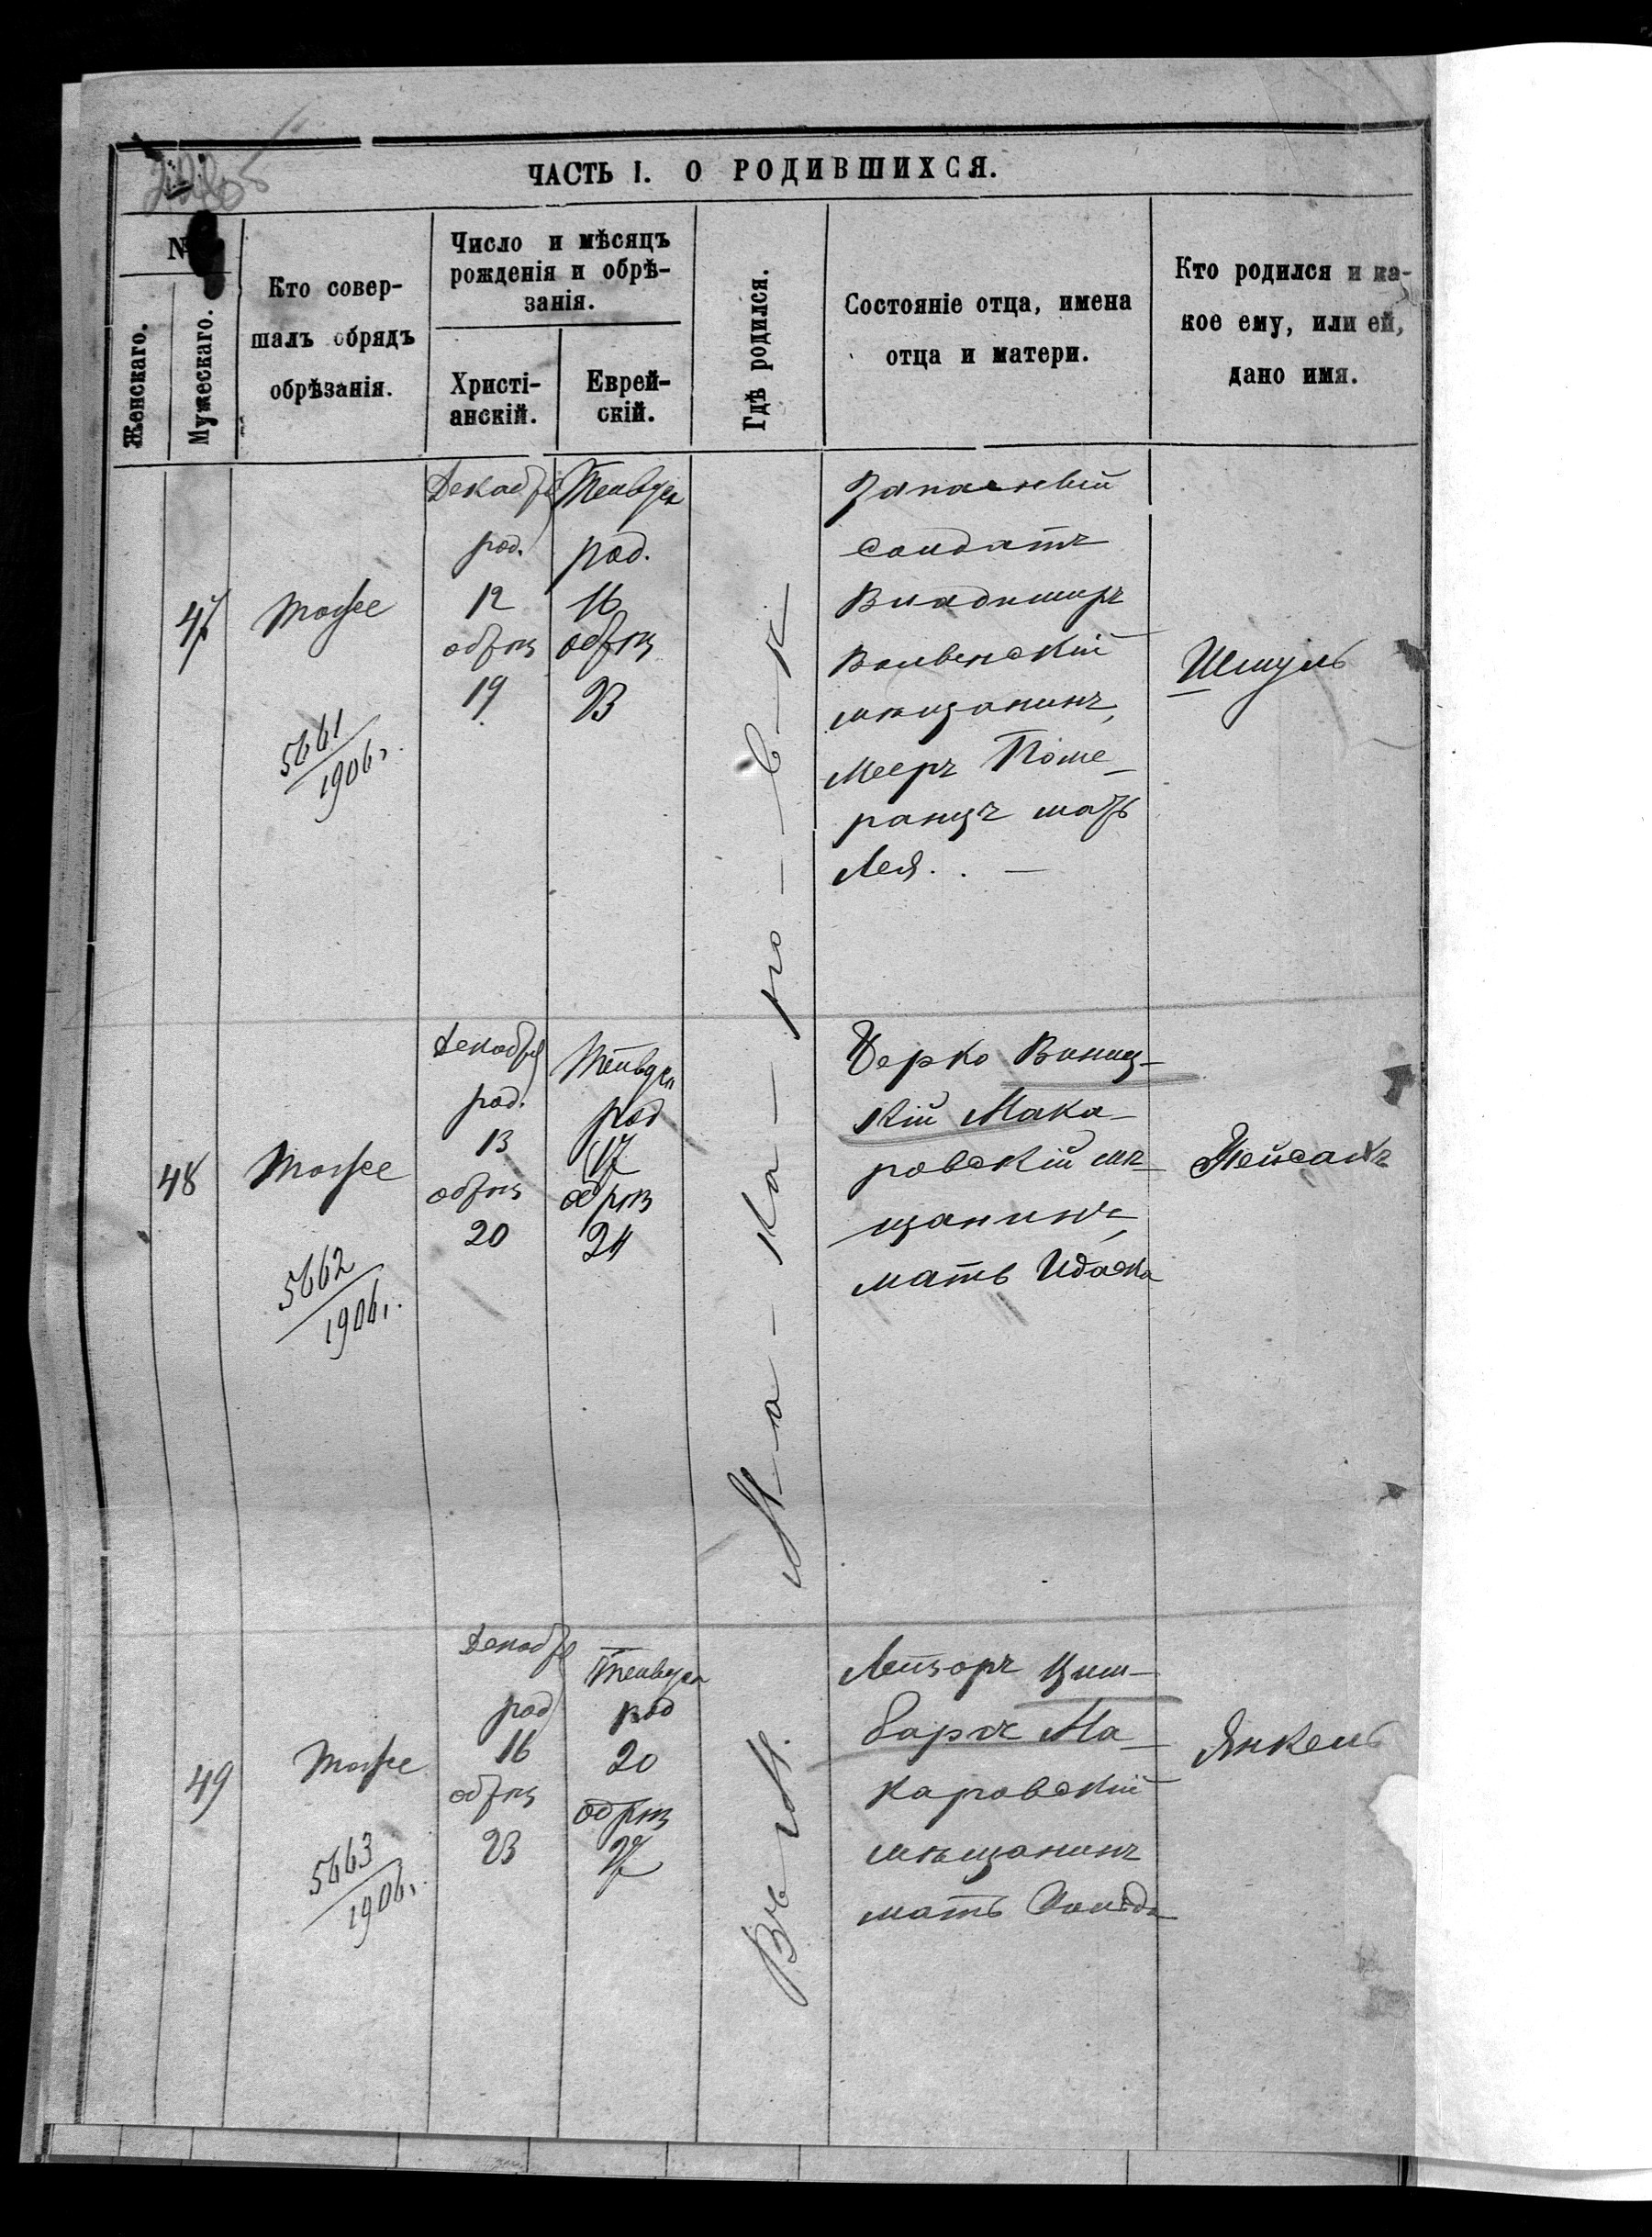 ЧАСТЬ I. О РОДИВШИХСЯ.
№
Женскаго.
Мужескаго.
Кто совер-
шалъ обрядъ
обрѣзанія.
Число и мѣсяцъ
рожденія и обрѣ-
занія.
Христі-
анскій.
Еврей-
скій.
Гдѣ родился.
Состояніе отца, имена
отца и матери.
Кто родился и ка-
кое ему, или ей,
дано имя.
47
Тотже
5661
1906 г.
Декабря
род.
12
обрѣз
19
Тейвеса
род.
16
обрѣз
23
Въ м. Ма-ка-ро-в-ѣ
Запасный
солдатъ
Владимиръ
Волынскій
мѣщанинъ,
Мееръ Поме-
ранцъ мать
Лея.
Шмуль
48
Тотже
5662
1906 г.
Декабря
род.
13
обрѣз
20
Тейвеса
род
17
обрѣз
24
Берко Виниц-
кій Мака-
ровскій мѣ-
щанинъ,
мать
Пейсахъ
49
Тотже
5663
1906 г.
Декабря
род
16
обрѣз
23
Тейвеса
род
20
обрѣз
27
Лейзоръ Цим-
баргъ Ма-
каровскій
мѣщанинъ
мать
Янкель